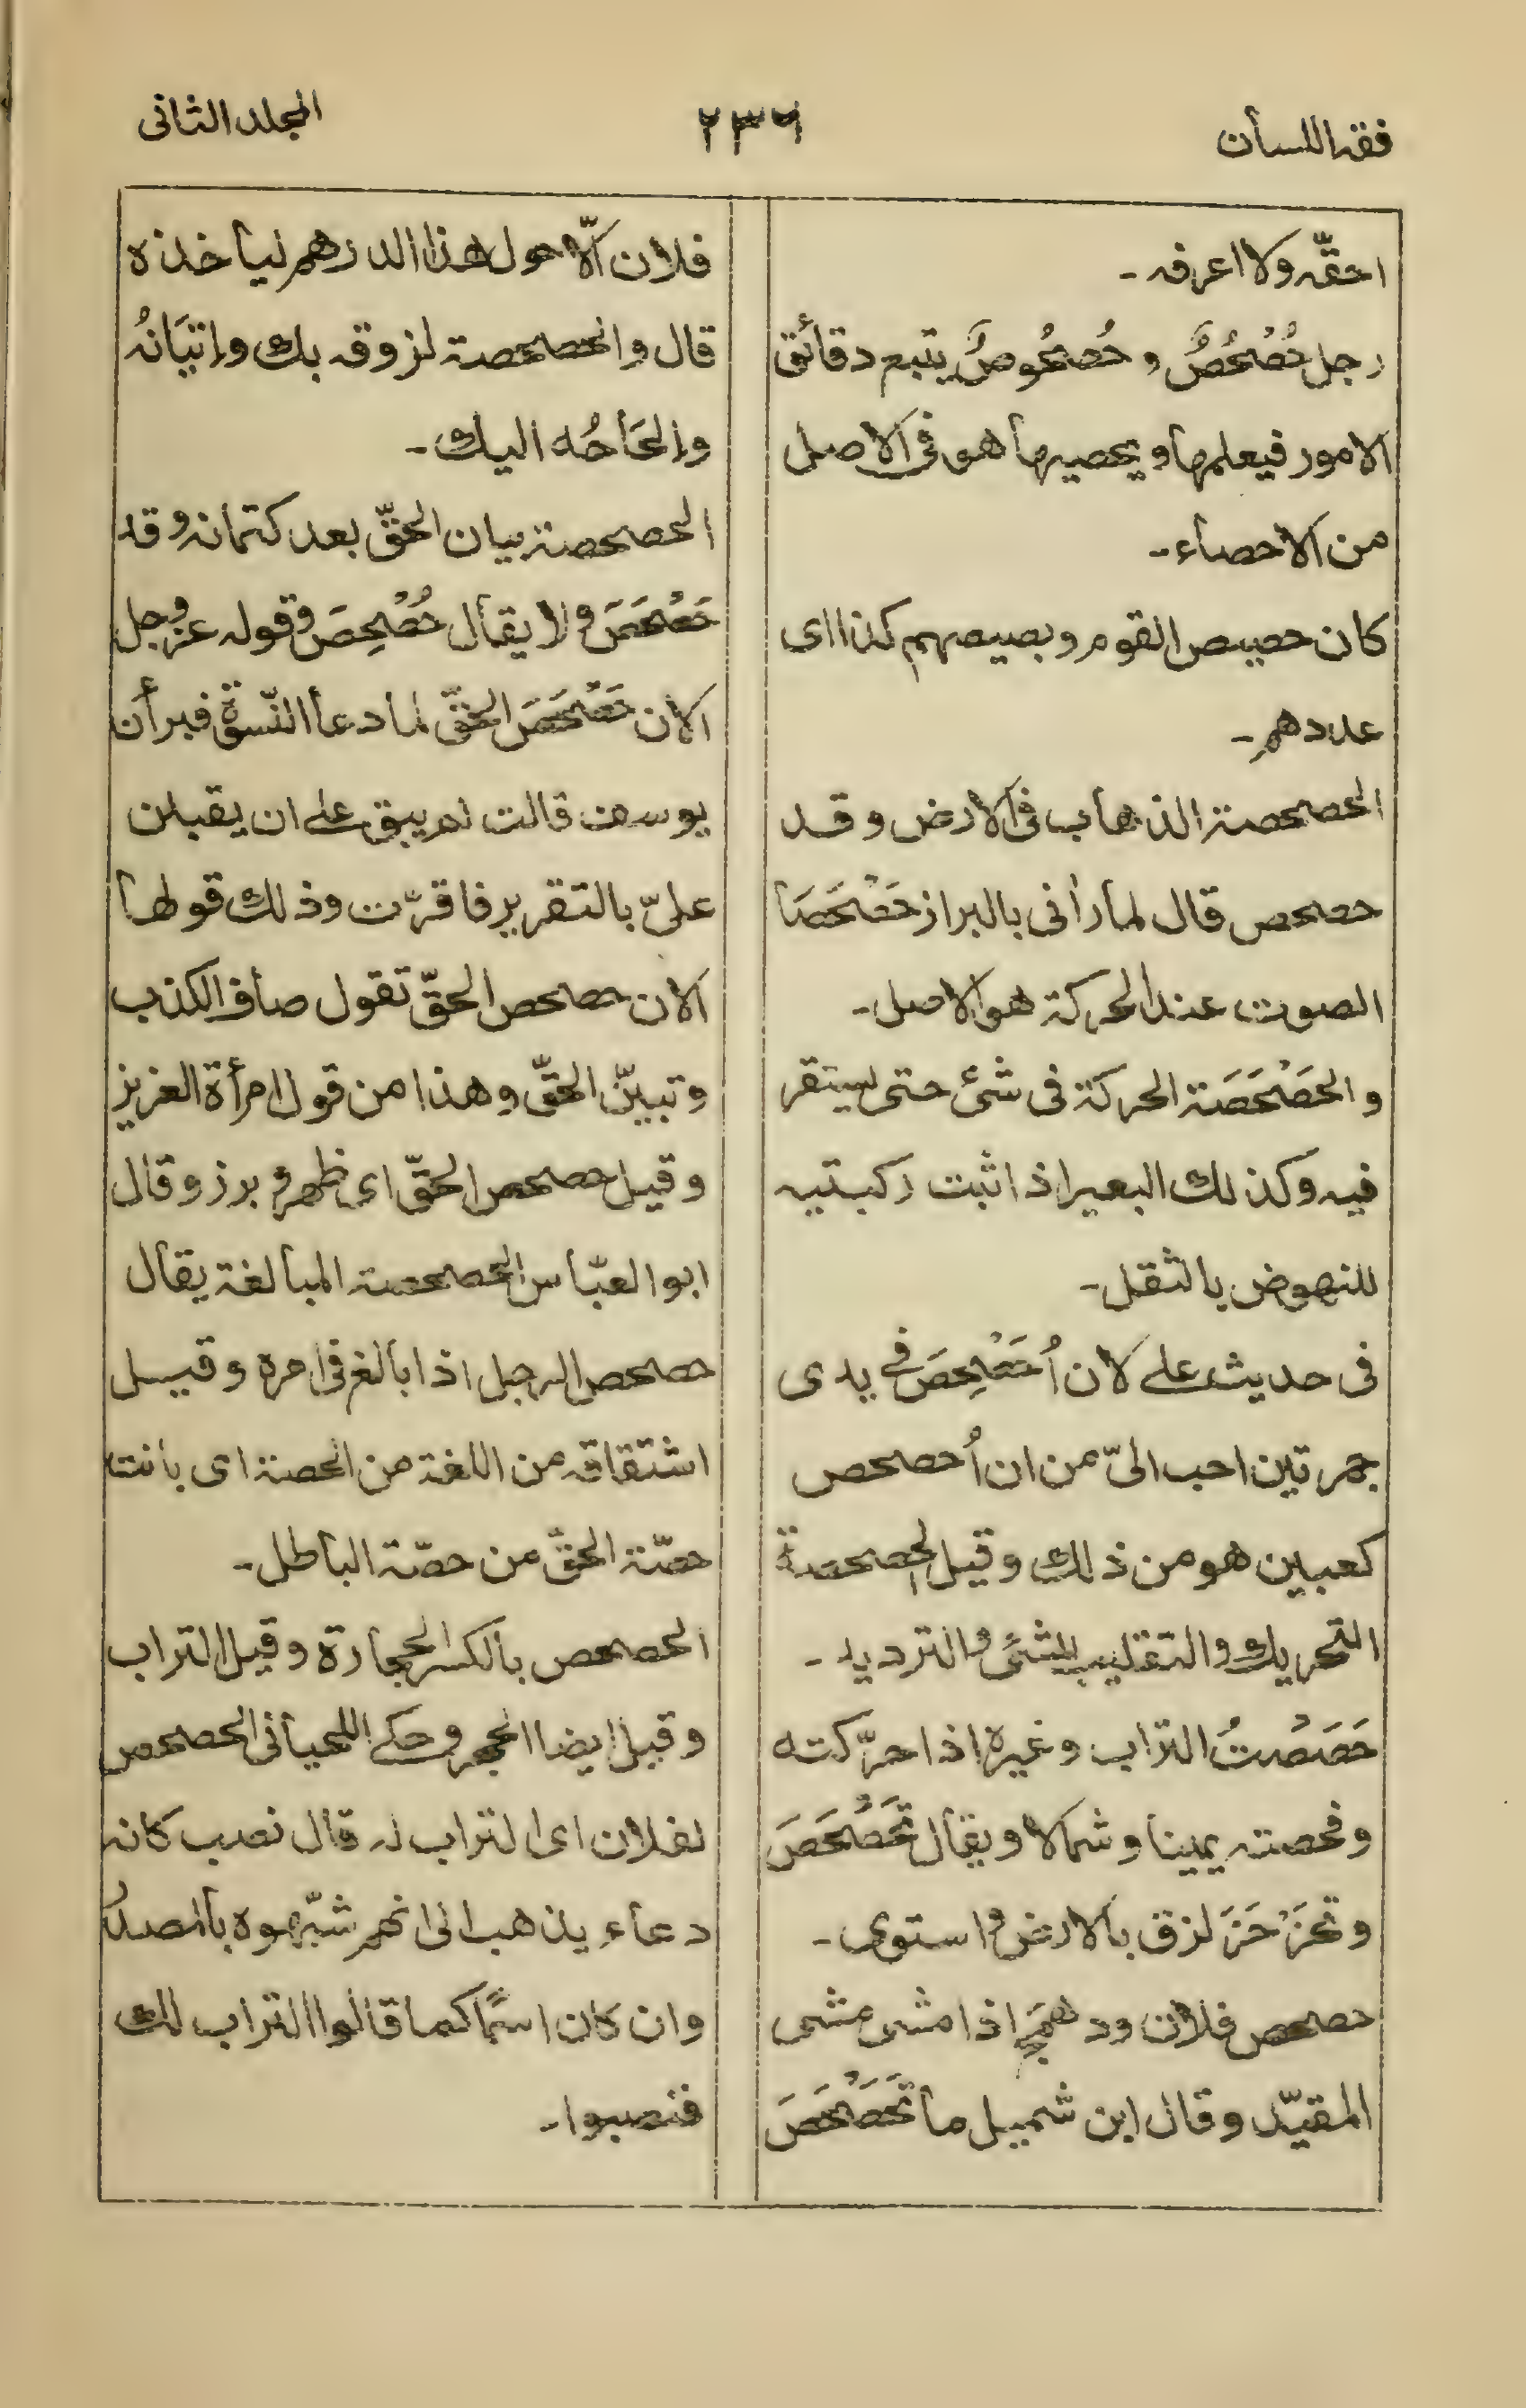 فقه اللسان
٢٣٦
المجلد الثانى
احقّه ولا اعرفه۔
رجل حُصْحُصٌ و حُصحُوصٌ يتبع دقائق
الامور فيعلمها ويحصيها هو فى الاصل
من الاحصاء۔
كان حصيص القوم وبصيصهم كذا اى
عددهم۔
الحصحصة الذهاب فى الارض وقد
حصحص قال لما رأنى بالبراز حَصْحَصَا
الصوت عند الحركة هو الاصل۔
والحَصْحَصَة الحركة فى شئ حتى يستقر
فيه وكذلك البعير اذا اثبت ركبتيه
للنهوض بالثقل۔
فى حديث على لان اُحَصْحِصَ فى يدى
جمرتين احب الىّ من ان اُحصحص
كعبين هو من ذلك وقيل الحصحصة
التحريك والتقليب للشئ والترديد۔
حَصَصْتُ التراب وغيره اذا حرّكته
وفحصته يمينا وشمالا ويقال تَحَصْحَصَ
وتحَزْحَزَ لزق بالارض واستوى۔
حصحص فلان ودهمج اذا مشى مشى
المقيّد وقال ابن شميل ما تَحَصْحَصَ
فلان الّا حول هذا الدرهم ليأخذه
قال والحصحصة لزوقه بك وإتيَانُه
وإلحَاحُه اليك۔
الحصحصة بيان الحقّ بعد كتمانه وقد
حَصْحَصَ ولا يقال حُصْحِصَ وقوله عزوجل
الان حَصْحَصَ الحقّ لما دعا النّسوة فبرأن
يوسف قالت لم يبق على ان يقبلن
علىّ بالتقرير فاقرّت وذلك قولها
الان حصحص الحقّ تقول صاف الكذب
وتبيّن الحقّ وهذا من قول امرأة العزيز
وقيل حصحص الحقّ اى ظهر وبرز وقال
ابو العبّاس الحصحصة المبالغة يقال
حصحص الرجل اذا بالغ فى امره وقيل
اشتقاقه من اللغة من الحصة اى بانت
حصّة الحقّ من حصّة الباطل۔
الحصحص بالكسر الحجارة وقيل التراب
وقيل ايضا الحجر وحكى اللحيانى الحصحص
لفلان اى التراب له قال نصب كانه
دعاء يذهب الى انهم شبّهوه بالمصدر
وان كان اسمًا كما قالوا التراب لك
فنصبوا۔